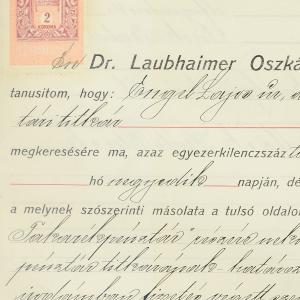 2
KORONA
Én Dr. Laubhaimer Oszká
tanusitom, hogy: Engel Lajos úr, a
társ titkár
megkeresésére ma, azaz egyezerkilenczszáz t
hó negyedik napján, dé
a melynek szószerinti másolata a tulsó oldalo
Takarékpénztár" részére
pénztár titkárának
irodámban fizetés